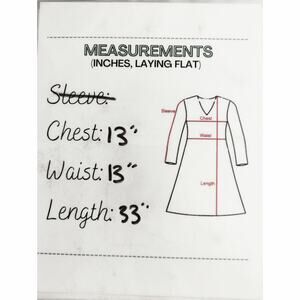 MEASUREMENTS
(INCHES, LAYING FLAT)
Sleeve:
Chest: 13"
Waist: 13"
Length: 33"
Sleeve
Chest
Waist
Length